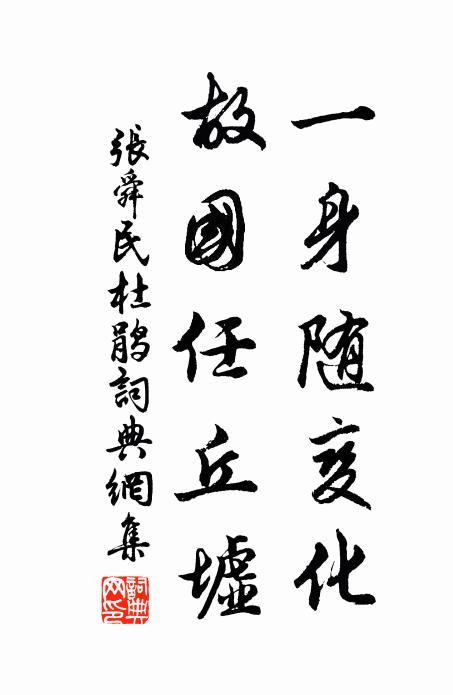 一身随变化
故國任丘墟
張舜民杜鹃詞典網集
詞典网印